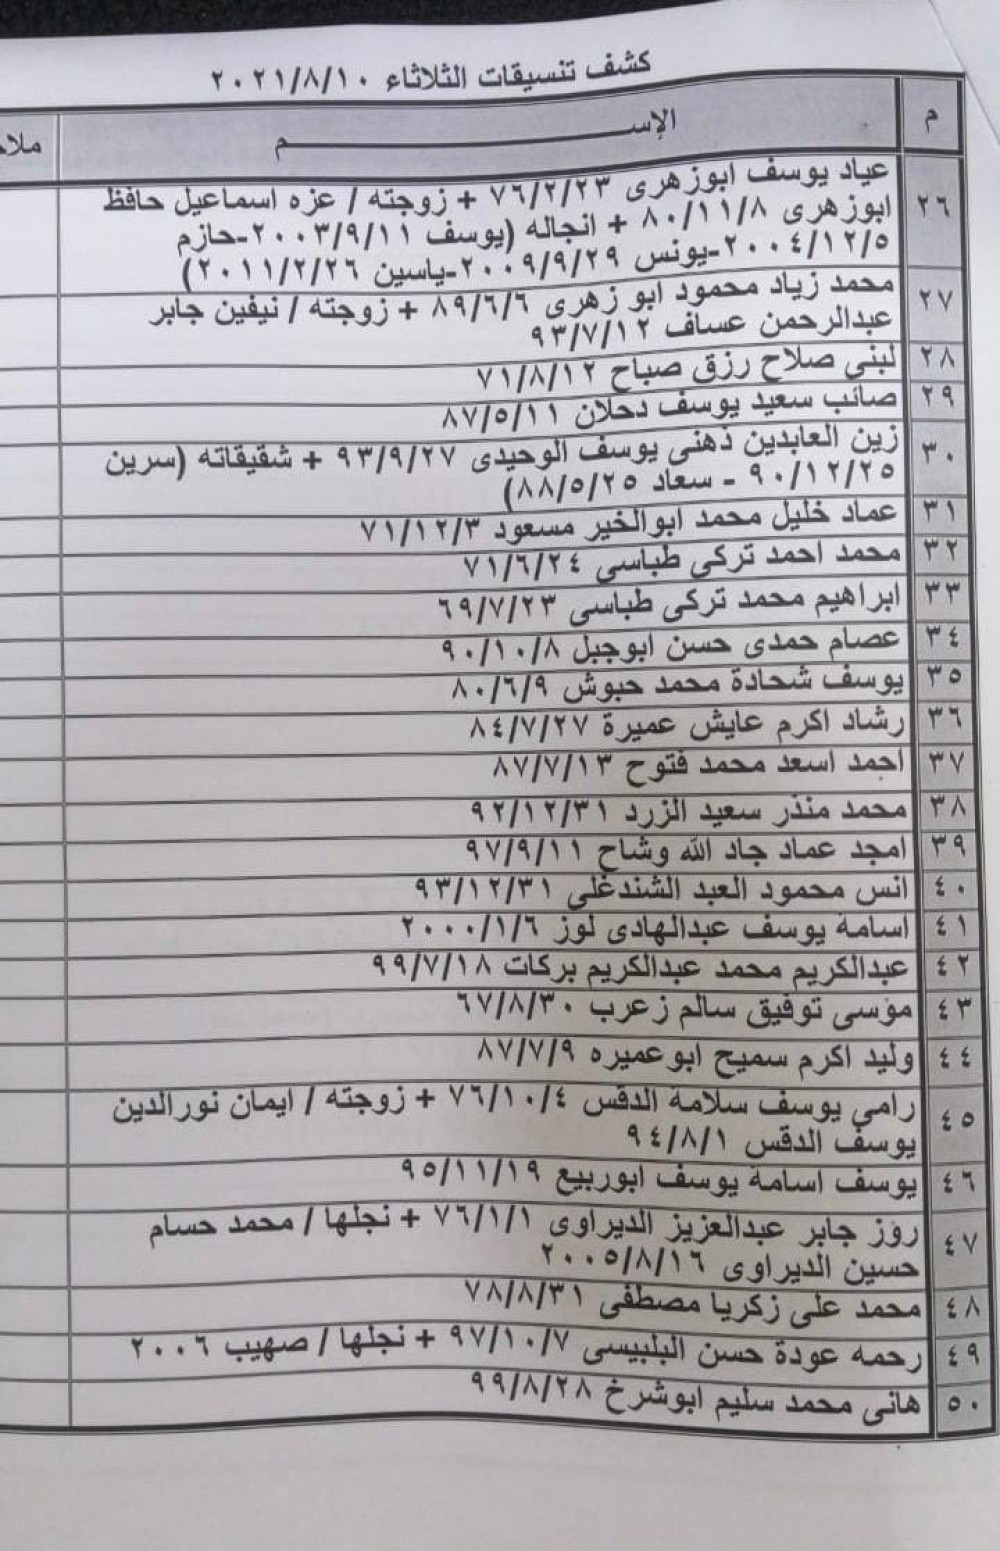 كشف تنسيقات الثلاثاء ٢٠٢١/٨/١٠
م الإســــــــم
٢٦ عياد يوسف ابوزهرى ٧٦/٢/٢٣ + زوجته / عزه اسماعيل حافظ
ابوزهرى ٨٠/١١/٨ + انجاله (يوسف ٢٠٠٣/٩/١١-حازم
٢٠٠٤/١٢/٥-يونس ٢٠٠٩/٩/٢٩-ياسين ٢٠١١/٢/٢٦)
٢٧ محمد زياد محمود ابو زهرى ٨٩/٦/٦ + زوجته / نيفين جابر
عبدالرحمن عساف ٩٣/٧/١٢
٢٨ لبني صلاح رزق صباح ٧١/٨/١٢
٢٩ صائب سعيد يوسف دحلان ٨٧/٥/١١
٣٠ زين العابدين ذهنى يوسف الوحيدى ٩٣/٩/٢٧ + شقيقاته (سرين
٩٠/١٢/٢٥ - سعاد ٨٨/٥/٢٥)
٣١ عماد خليل محمد ابوالخير مسعود ٧١/١٢/٣
٣٢ محمد احمد تركى طباسى ٧١/٦/٢٤
٣٣ ابراهيم محمد تركى طباسى ٦٩/٧/٢٣
٣٤ عصام حمدى حسن ابوجبل ٩٠/١٠/٨
٣٥ يوسف شحادة محمد حبوش ٨٠/٦/٩
٣٦ رشاد اكرم عايش عميرة ٨٤/٧/٢٧
٣٧ احمد اسعد محمد فتوح ٨٧/٧/١٣
٣٨ محمد منذر سعيد الزرد ٩٢/١٢/٣١
٣٩ امجد عماد جاد الله وشاح ٩٧/٩/١١
٤٠ انس محمود العبد الشندغلى ٩٣/١٢/٣١
٤١ اسامة يوسف عبدالهادى لوز ٢٠٠٠/١/٦
٤٢ عبدالكريم محمد عبدالكريم بركات ٩٩/٧/١٨
٤٣ موسى توفيق سالم زعرب ٦٧/٨/٣٠
٤٤ وليد اكرم سميح ابوعميره ٨٧/٧/٩
٤٥ رامى يوسف سلامة الدقس ٧٦/١٠/٤ + زوجته / ايمان نورالدين
يوسف الدقس ٩٤/٨/١
٤٦ يوسف اسامة يوسف ابوربيع ٩٥/١١/١٩
٤٧ روز جابر عبدالعزيز الديراوى ٧٦/١/١ + نجلها / محمد حسام
حسين الديراوى ٢٠٠٥/٨/١٦
٤٨ محمد على زكريا مصطفى ٧٨/٨/٣١
٤٩ رحمه عودة حسن البلبيسى ٩٧/١٠/٧ + نجلها / صهيب ٢٠٠٦
٥٠ هانى محمد سليم ابوشرخ ٩٩/٨/٢٨